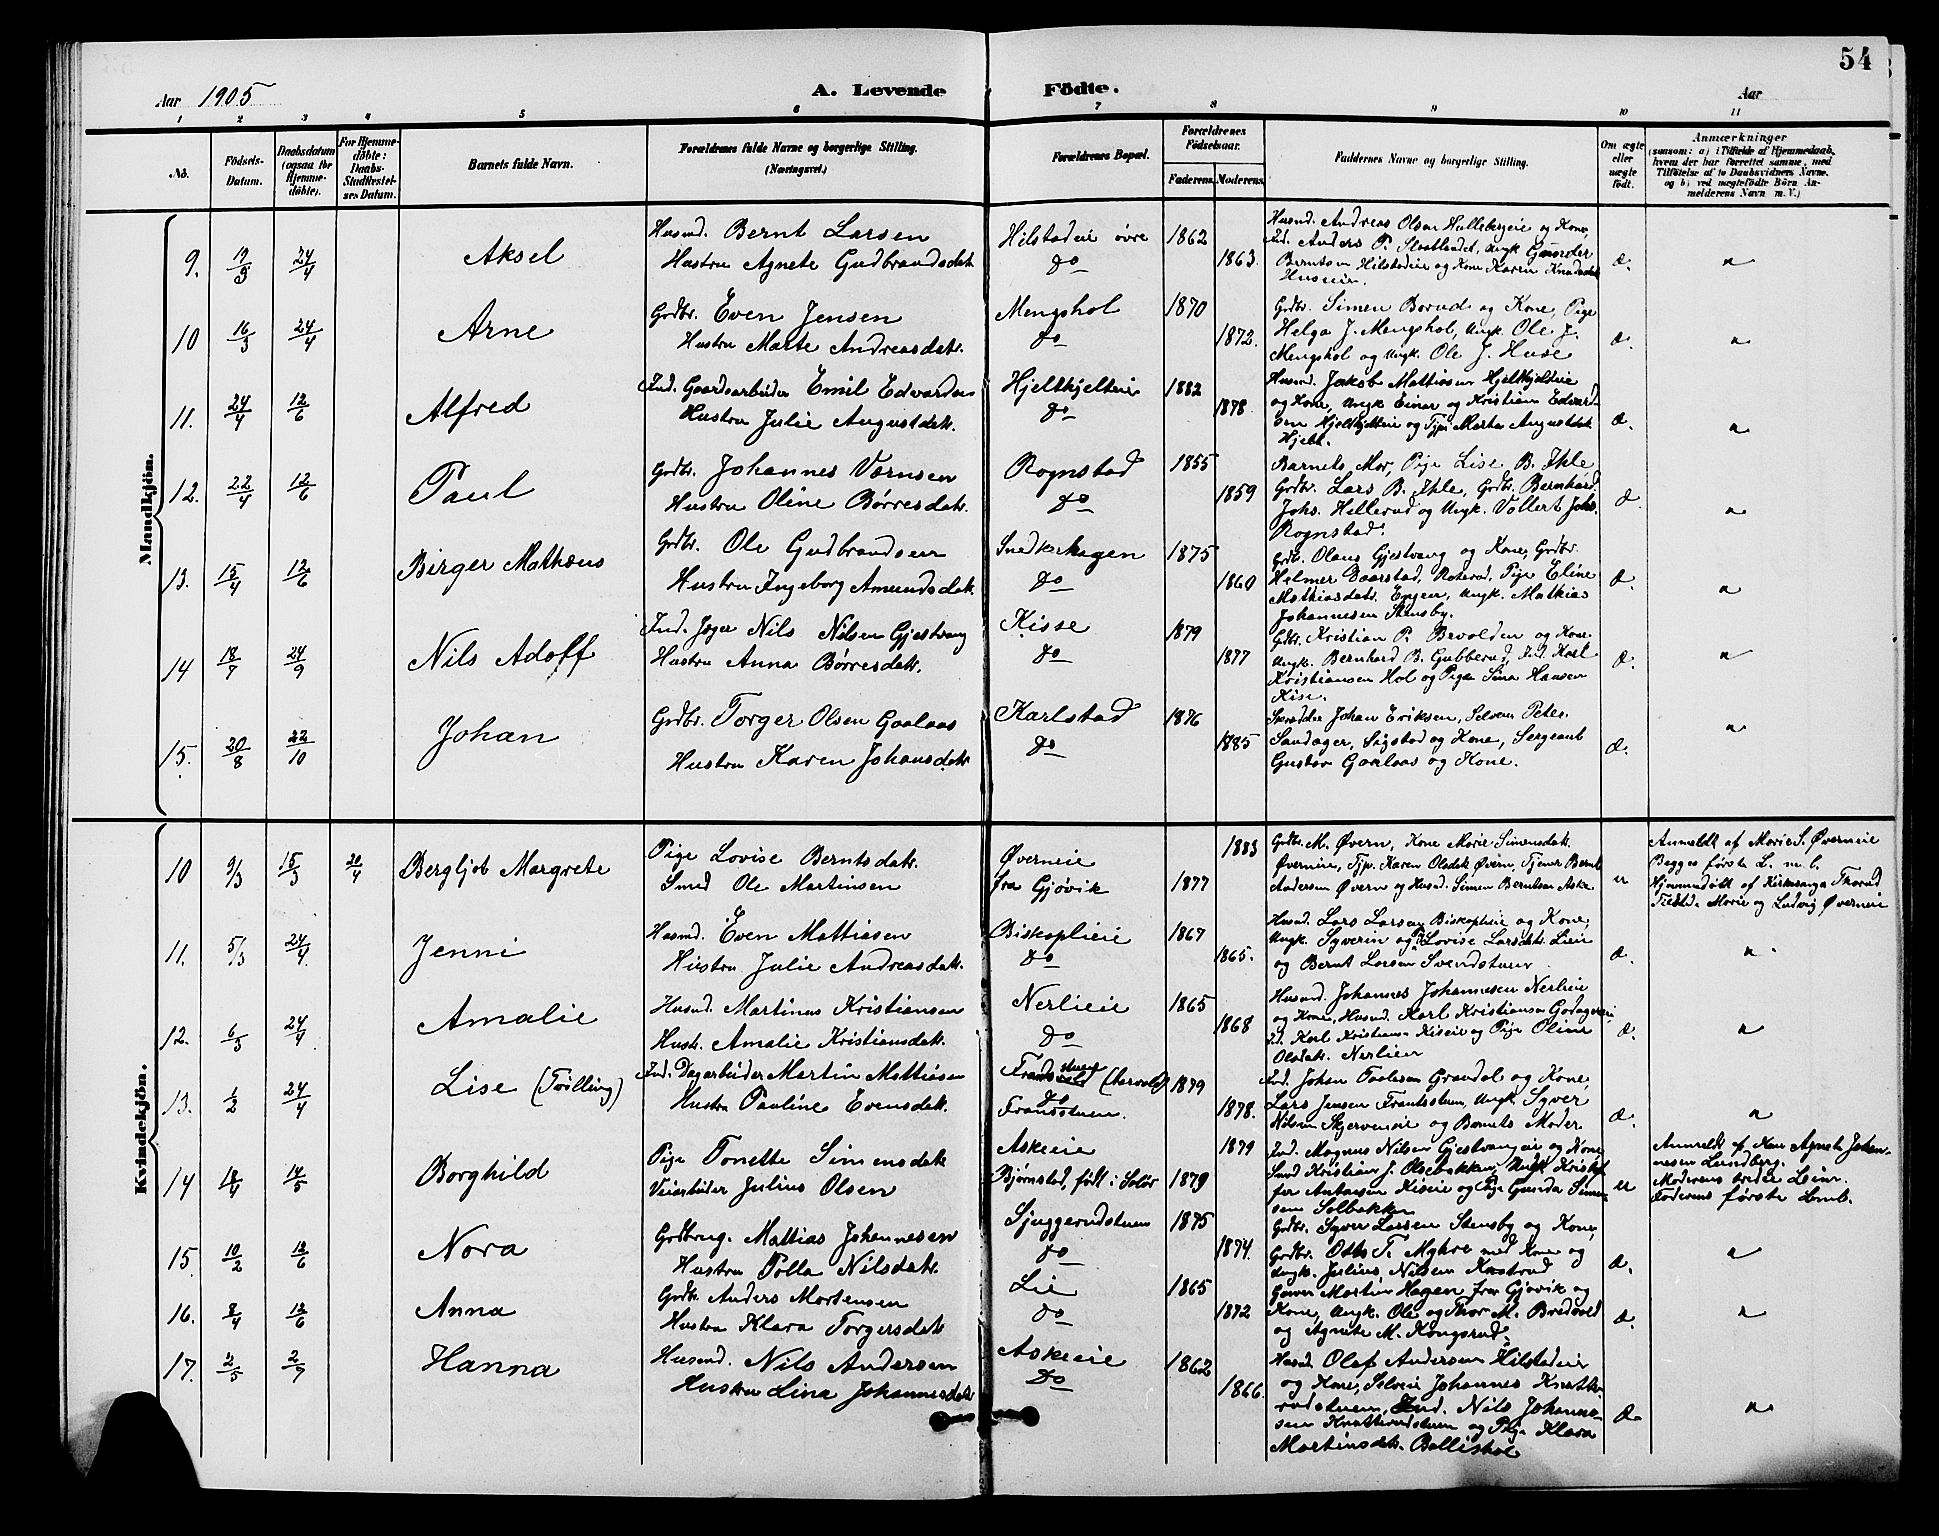 54
Aar 1905
A. Levende Födte.
Aar
1 2 3 4 5 6 7 8 9 10 11
No.
Födsels-Datum.
Daabsdatum (ogsaa for Hjemmedöbte).
For Hjemmedöbte: Daabs-Stadfæstelses Datum.
Barnets fulde Navn.
Forældrenes fulde Navne og borgerlige Stilling. (Næringsvei.)
Forældrenes Bopæl.
Forældrenes Födselsaar.
Faderens. Moderens.
Faddernes Navne og borgerlige Stilling.
Om ægte eller uægte födt.
Anmærkninger
(saasom: a) i Tilfælde af Hjemmedaab, hvem der har forrettet samme, med Tilföielse af to Daabsvidners Navne. og b) ved uægtefödte Börn Anmelderens Navn m. V.)
Mandkjön.
9. 19/3 24/4 Aksel
Husmd. Bernt Larsen
Hustru Agnete Gudbrandsdatr.
Hilstadeie øvre
do
1862
1863.
Husmd. Andreas Olsen Hullebergeie og Kone,
Ind. Anders P. Slaatlandet, Ungk.
Berntsen Hilstadeie og Kone Karen Knudsdatr
Huseie.
æ.
"
10 16/3 24/4 Arne
Grdbr. Even Jensen
Hustru Marte Andreasdatr.
Mengshol
do
1870
1872.
Grdbr. Simen Borud og Kone, Pige
Helga J. Mengshol, Ungk. Ole J.
Mengshol og Ungk. Ole J. Huse
æ.
"
11. 24/4 12/6 Alfred
Ind. Gaardsarbeider Emil Edvardsen
Hustru Julie Augustdatr.
Hjeltkjelteie
do
1882
1878
Husmd. Jakob Mattiasen Hjeltkjelteie
og Kone, Ungk. Einar og Kristian Edvardsen
Hjeltkjelteie og Tjp. Marta Augustdatr
Hjelt.
æ.
"
12. 22/4 12/6 Paul
Grdbr. Johannes Vornsen
Hustru Oline Børresdatr.
Rognstad
do
1855
1859
Barnets Mor, Pige Lise B. Ihle,
Grdbr. Lars B. Ihle, Grdbr. Bernhard
Johs. Hellerud og Ungk. Vollert Johs.
Rognstad.
æ.
"
13. 15/4 12/6 Birger Mathæus
Grdbr. Ole Gudbrandsen
Hustru Ingeborg Amundsdatr.
Snedkerhagen
do
1875
1860
Grdb. Olaus Gjestvang og Kone, Grdbr.
Helmer Daarstad, Roterud, Pige Eline
Mathiasdatr. Engen, Ungk. Mathias
Johannesen Stensby.
æ.
"
14 18/7 24/9 Nils Adolf
Ind. Jæger Nils Nilsen Gjestvang
Hustru Anna Børresdatr.
Kisse
do
1879
1877
Grdbr. Kristian P. Brvolden og Kone
Ungk. Bernhard B. Gubberud, Ind. Karl
Kristiansen Hol og Pige Sina Hansen
Kise.
æ.
"
15. 20/8 22/10 Johan
Grdbr. Torger Olsen Gaalaas
Hustru Karen Johansdatr.
Karlstad
do
1876
1885
Skrædder Johan Eriksen, Selveier Peter
Sandager, Sigstad og Kone, Sergeant
Gustav Gaalaas og Kone.
æ.
"
Kvindekjön.
10 9/3 15/3 30/4 Bergljot Margrete
Pige Lovise Berntsdatr.
Smed Ole Martinsen
Øverneie
fra Gjøvik
1883
1877
Grdbr. M. Øvern, Kone Marie Simensdatr.
Øverneie, Tjp. Karen Olsdatr Øvern, Tjener Bernt
Andersen Øvern og Husmd. Simen Berntsen Aske
u
Anmeldt af Marie S. Øverneie
Begges første L. m. b.
Hjemmedöbt af Kirkesanger Thorud
Tilstede Marie og Ludvig Øverneie
11. 5/3 24/4. Jenni
Husmd. Even Mattiasen
Hustru Julie Andreasdatr.
Biskoplieie
do
1867
1865.
Husmd. Lars Larsen Biskoplieie og Kone,
Ungk. Syverin og P. Lovise Larsdatr. Lieie
og Bernt Larsen Svendstuen.
æ.
"
12. 6/3 24/4 Amalie
Husmd. Martinus Kristiansen
Hustr. Amalie Kristiansdatr.
Nerlieie
do
1865
1868
Husmd. Johannes Johannesen Nerlieie
og Kone, Husmd. Karl Kristiansen Godagereie,
Id. Karl Kristiansen Kiseie og Pige Oline
Olsdatr. Nerlien
æ.
"
13. 1/2 24/4 Lise (Tvilling)
Ind. Dagarbeider Martin Mattiasen
Hustru Pauline Evensdatr.
do
Fransstuen.
1879
1878.
Ind. Johan Paulsen Grandal og Kone,
Lars Jensen Frantsstuen, Ungk. Syver
Nilsen Skjerveneie og Barnets Moder
æ.
"
14 18/4 14/5 Borghild
Pige Tonette Simensdatr
Veiarbeider Julius Olsen
Askeeie
Bjørnstad, født i Solør
1879
1879
Ind. Magnus Nilsen Gjestvangeie og Kone
Smd Kristian J. Olsebakken, Ungk. Kristoffer
Antonsen Kiseie og Pige Gunda Simensen
Solbakken
u
Anmeldt af Kone Agnete Johannesen
Lundberg.
Moderens tredie Leier.
Faderens første Lmb.
15. 10/2 12/6 Nora
Grdbrug. Mattias Johannesen
Hustru Polla Nilsdatr.
Sjuggerudstuen
do
1875
1874.
Grdbr. Syver Larsen Stensby og Kone,
Grdbr. Otto T. Myhre med Kone og
Ungk. Julius Nilsen Knatrud
æ.
"
16. 8/4 12/6 Anna
Grdbr. Anders Mortensen
Hustru Klara Torgersdatr.
Lie
do
1865
1872
Garver Martin Hagen fra Gjøvik og
Kone, Ungk. Ole og Thor M. Bredvold
og Agnete M. Kongsrud.
æ.
"
17. 2/5 2/7 Hanna
Husmd. Nils Andersen
Hustru Lina Johannesdatr
Askeeie
do
1862
1866.
Husmd. Olaf Andersen Hilstadeie
og Kone, Selveier Johannes Knatterudstuen,
Ind. Nils Johannesen
Knatterudstuen og Pige Klara
Martinsdatr. Bollishol
æ.
"